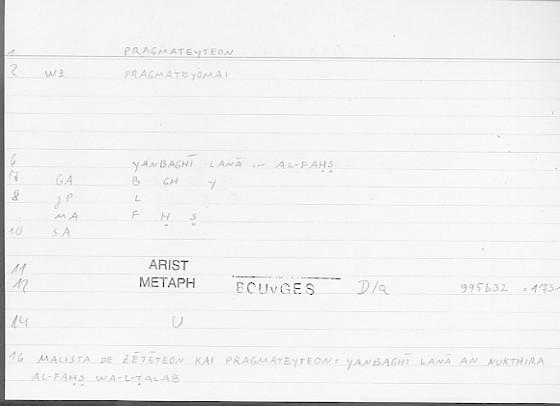 1 PRAGMATEYTEON
2 WZ PRAGMATEYOMAI
6 YANBAGHĪ LANĀ ... AL-FAḤṢ
7 GA B GH Y
8 JP L
MA F Ḥ Ṣ
10 SA
11 ARIST
12 METAPH BOUYGES D/a 995b32 = 173.
14 U
16 MALISTA DE ZĒTĒTEON KAI PRAGMATEYTEON: YANBAGHĪ LANĀ AN NUKTHIRA
AL-FAḤṢ WA-L-ṬALAB